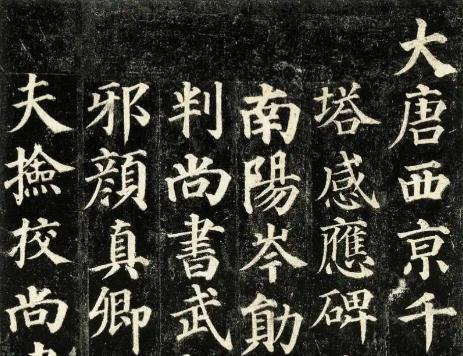 大唐西京千
塔感應碑
南陽岑勛
判尚書武
邪顏真卿
夫撿挍尚